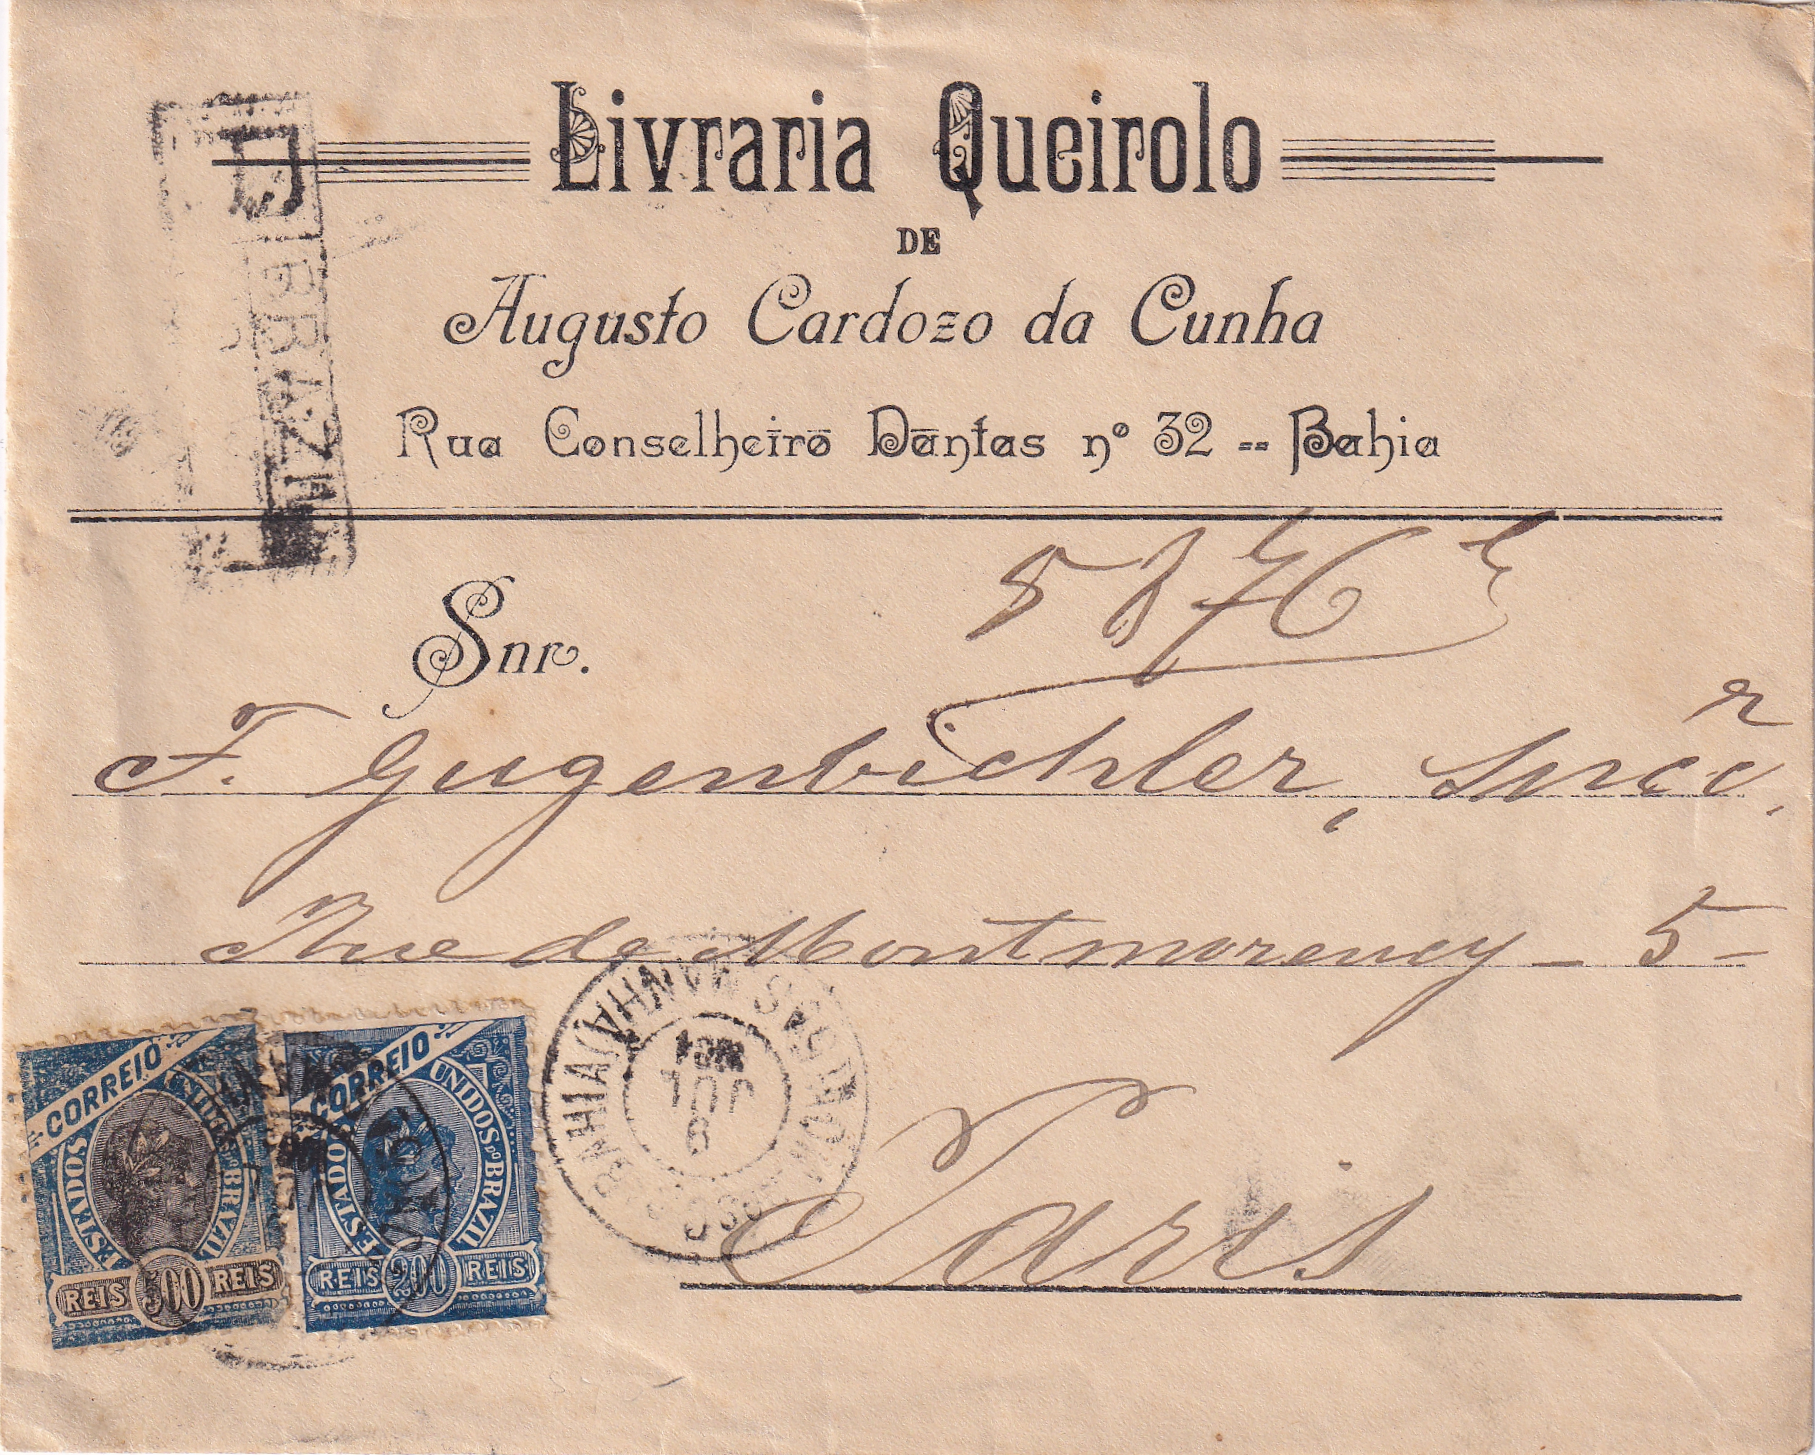 Livraria Queirolo
DE
Augusto Cardozo da Cunha
Rua Conselheiro Dantas nº 32 -- Bahia
R
BRAZIL
Snr.
F. Gugenbichler, Succr,
Rue de Montmorency - 5 -
Paris
CORREIO
ESTADOS UNIDOS DO BRAZIL
REIS 500 REIS
CORREIO
ESTADOS UNIDOS DO BRAZIL
REIS 200 REIS
BAHIA
JUL